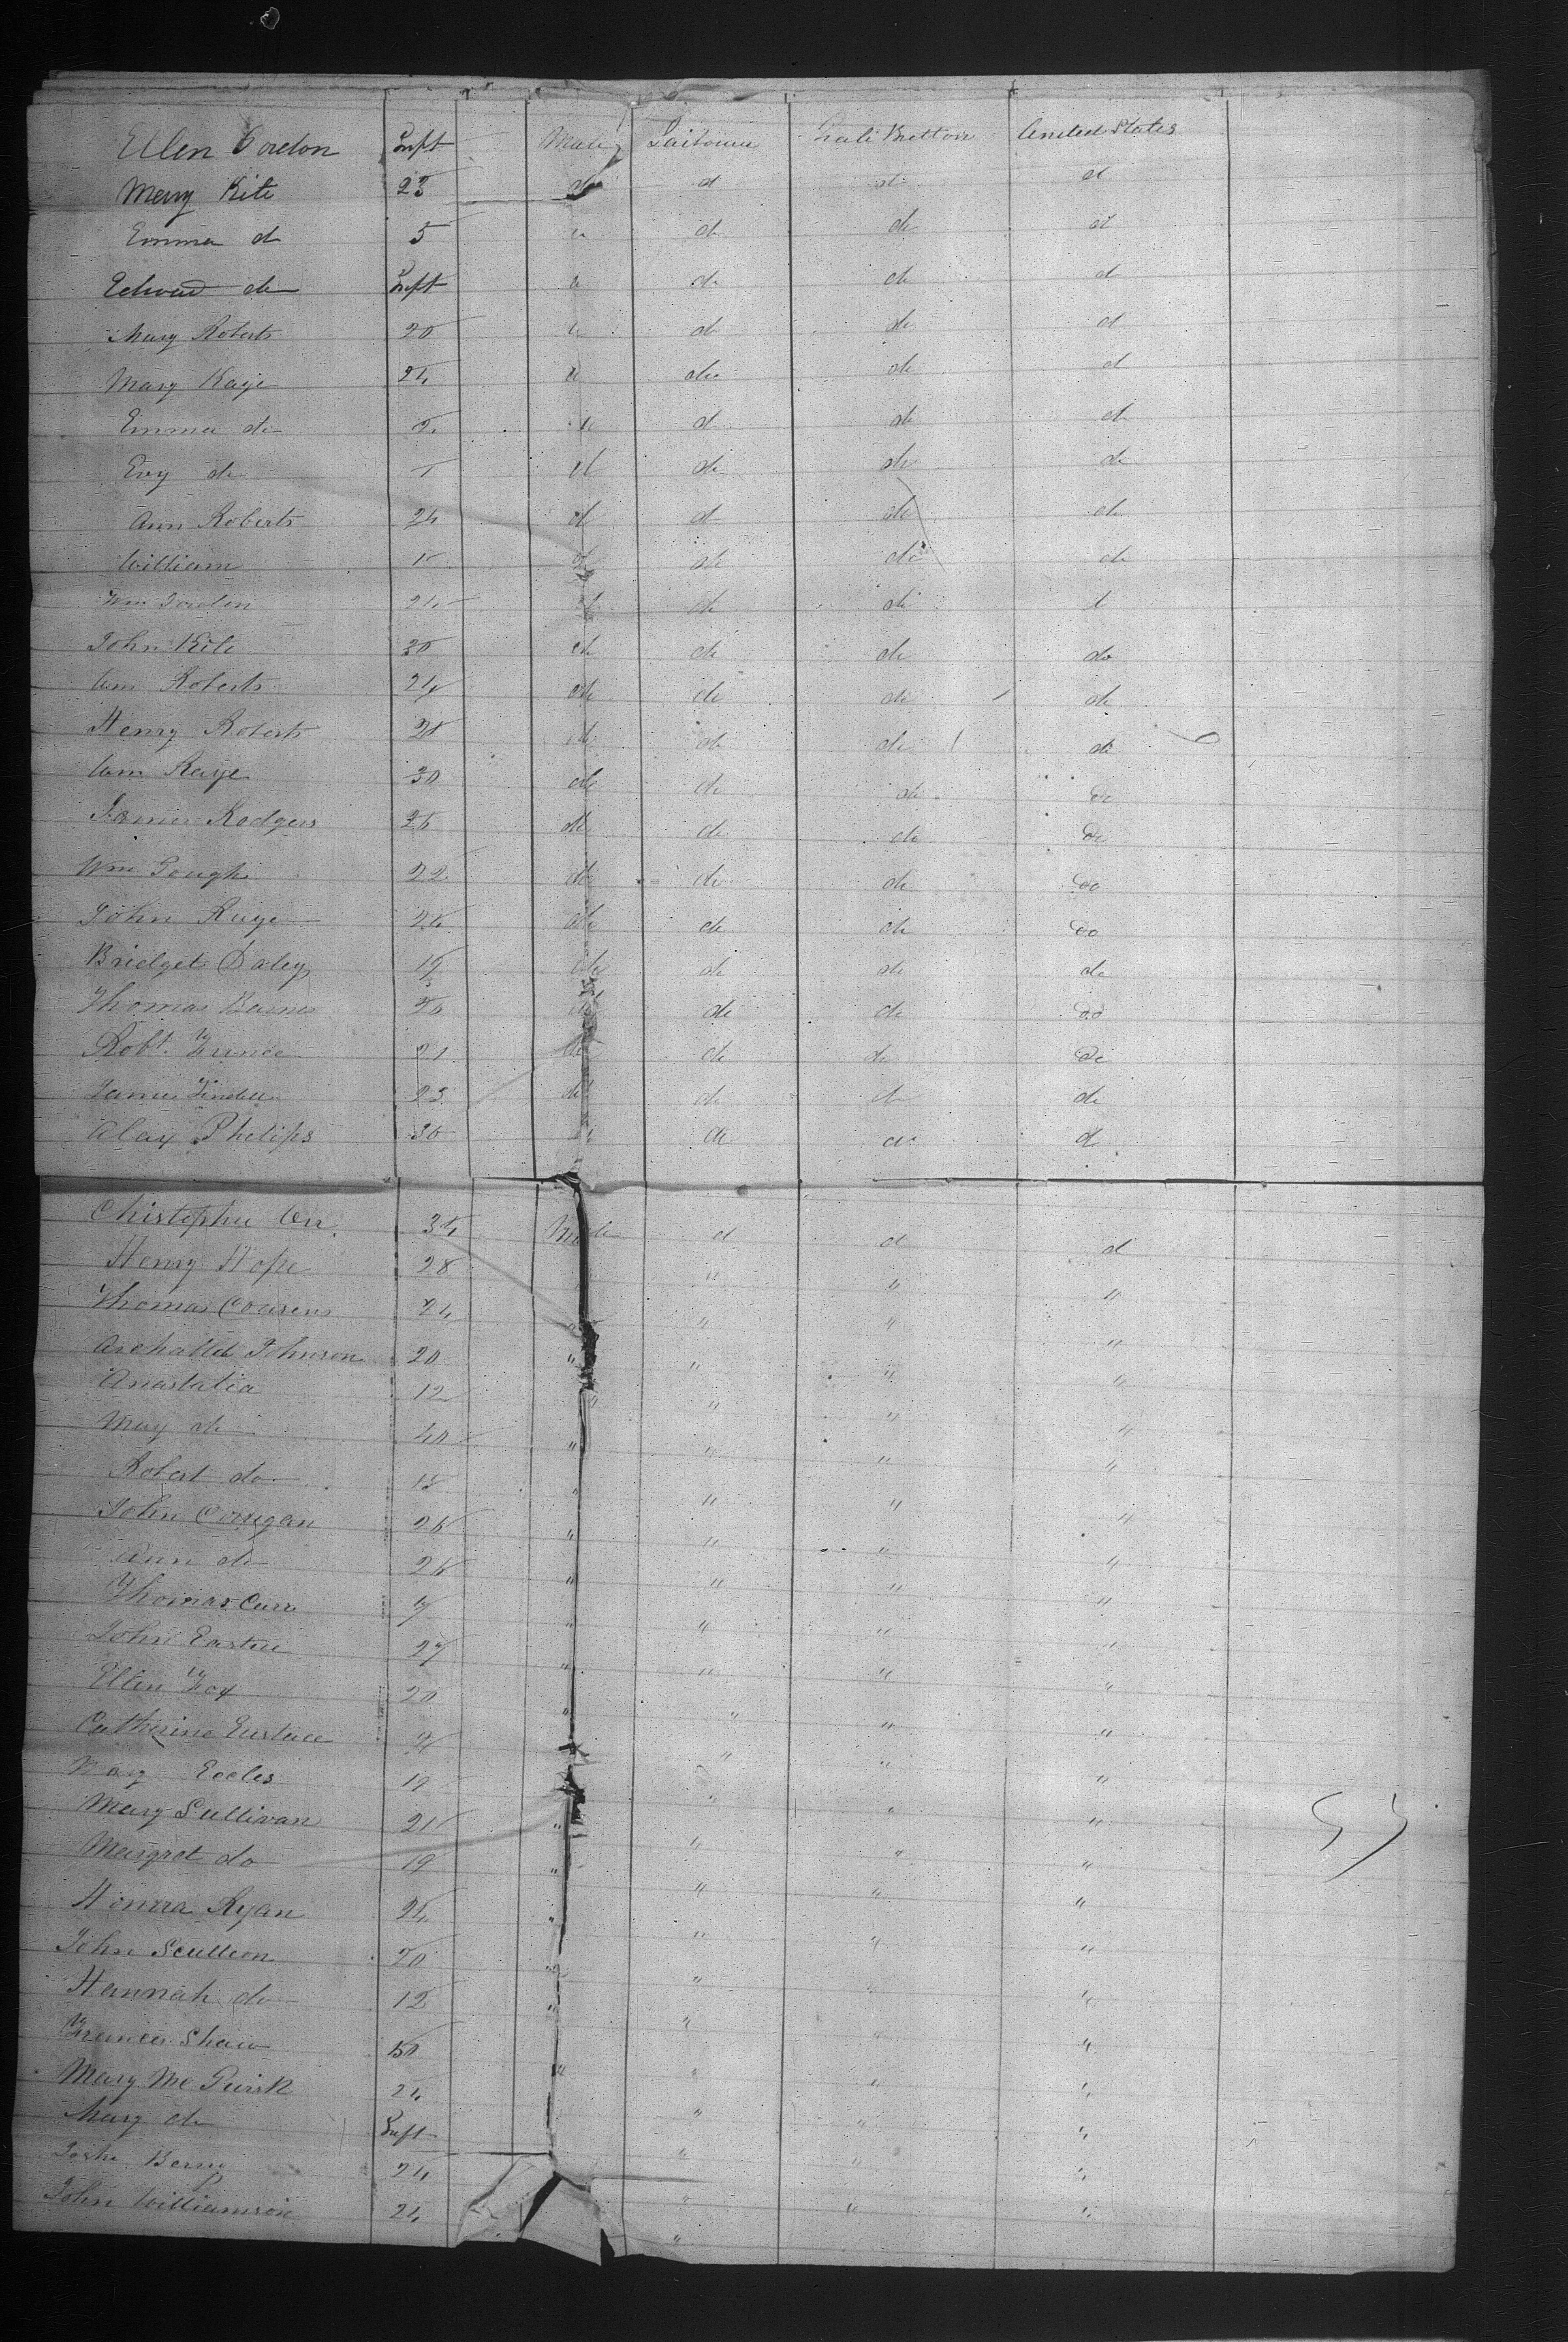 Ellen Gordon Inft Male Laibourer Great Brittain United States
Mary Kite 23 do d do d
Emma do 5 " do do d
Edward do Inft " do do d
Mary Roberts 20 " do do d
Mary Kaye 24 " do do d
Emma do 2 " d do d
Evy do 1 d do do do
Ann Roberts 24 d d do do
William do do do
Wm Gorden 24 do do do d
John Kite 30 do do do do
Wm Roberts 24 do do do do
Henry Roberts 21 do do do do
Wm Kaye 30 do do do do
James Rodgers 26 do do do do
Wm Gough 22 do do do do
John Kaye do do do do
Bridget Daley 19 do do do do
Thomas Barnes 20 do do do do
Robt. 21 do do do do
James 23 do do do do
Alax Phelips 30 " do do d
Christopher Orr 34 Male d d d
Henry Hope 28 " " "
Thomas Cousens 24 " " " "
Archabld Johnson 20 " " " "
Anastatia 12 " " " "
Mary do 40 " " " "
Robert do 15 " " " "
John Corrigan 26 " " " "
Ann do 26 " " " "
Thomas Carr 7 " " " "
John 27 " " " "
Ellen Fox 20 " " " "
Catherine Eustace " " "
Mary Eccles 19 " " "
Mary Sullivan 21 " " " "
Margret do 19 " " " "
Honora Ryan 24 " " " "
John Scullion 20 " " " "
Hannah do 12 " " " "
Frances Shaw 50 " " "
Mary Mc 24 " " " "
Mary do Inft " " "
Berry 24 " " "
John Williamson 24 " " "